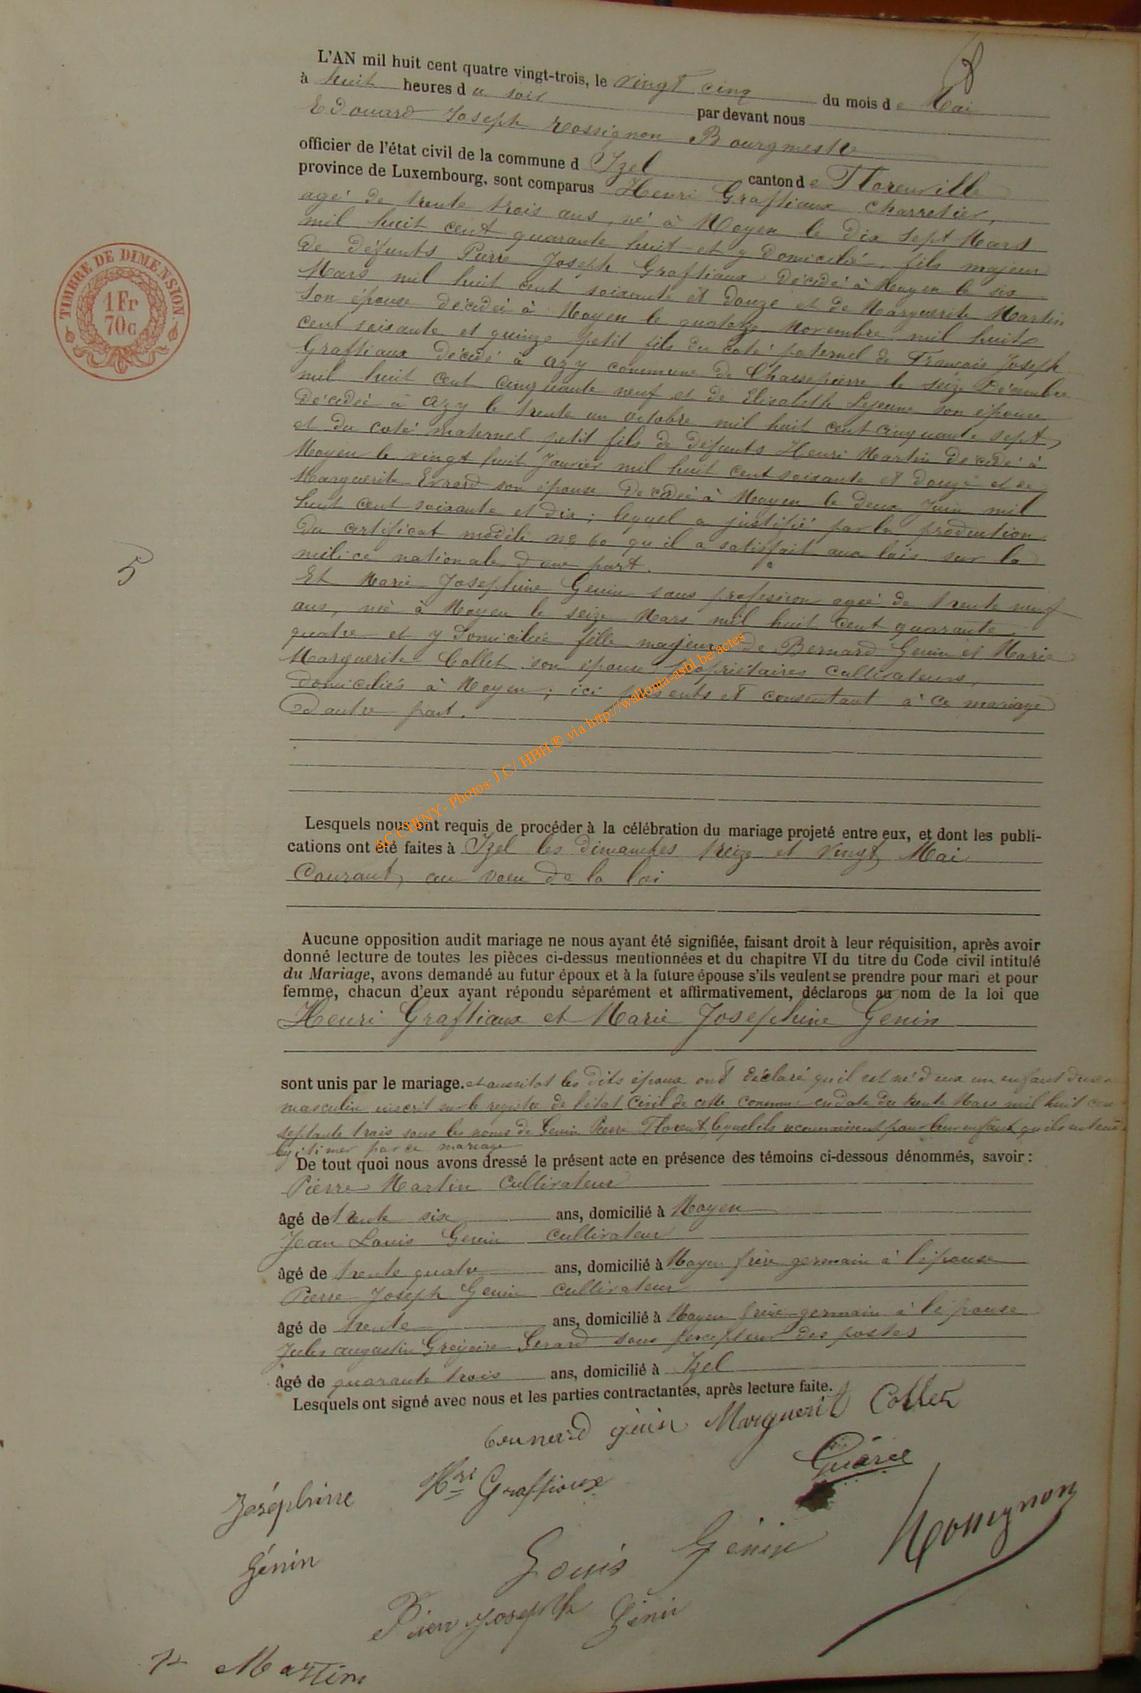 L'AN mil huit cent quatre vingt-trois, le vingt cinq du mois de Mai
à huit heures du soir par devant nous
Edouard Joseph Rossignon Bourgmestre
officier de l'état civil de la commune d Izel canton de Florenville
province de Luxembourg, sont comparus Henri Graftiaux charretier,
agé de trente trois ans, né à Moyen le dix sept Mars
mil huit cent quarante huit et y domicilié, fils majeur
de défunts Pierre Joseph Graftiaux décédé à Moyen le six
Mars mil huit cent soixante et douze et de Marguerite Martin
son épouse décédée à Moyen le quatorze Novembre mil huit
cent soixante et quinze petit fils du coté paternel de François Joseph
Graftiaux décédé à Azy commune de Chassepierre le seize Décembre
mil huit cent cinquante neuf et de Elisabeth Lejeune son épouse
décédée à Azy le trente un octobre mil huit cent cinquante sept,
et du coté maternel petit fils de défunts Henri Martin décédé à
Moyen le vingt huit Janvier mil huit cent soixante et douze et de
Marguerite Evrard son épouse décédée à Moyen le deux Juin mil
huit cent soixante et dix ; lequel a justifié par la production
du certificat modèle no 60 qu'il a satisfait aux lois sur la
milice nationale d'une part.
Et Marie Josephine Genin sans profession agée de trente neuf
ans, née à Moyen le seize Mars mil huit cent quarante
quatre et y domiciliée fille majeure de Bernard Genin et Marie
Marguerite Collet son épouse propriétaires cultivateurs,
domiciliés à Moyen ; ici présents et consentant à ce mariage
d'autre part.
5
TIMBRE DE DIMENSION
1 Fr
70c
Photos J.C/ HBH © via http://wallonia-asbl.be/actes
Lesquels nous ont requis de procéder à la célébration du mariage projeté entre eux, et dont les publi-
cations ont été faites à Izel les dimanches treize et vingt Mai
Courant, au voeu de la loi
Aucune opposition audit mariage ne nous ayant été signifiée, faisant droit à leur réquisition, après avoir
donné lecture de toutes les pièces ci-dessus mentionnées et du chapitre VI du titre du Code civil intitulé
du Mariage, avons demandé au futur époux et à la future épouse s'ils veulent se prendre pour mari et pour
femme, chacun d'eux ayant répondu séparément et affirmativement, déclarons au nom de la loi que
Henri Graftiaux et Marie Josephine Genin
sont unis par le mariage. et aussitot les dits époux ont déclaré qu'il est né d'eux un enfant du sexe
masculin inscrit sur le registre de l'état Civil de cette commune en date du trente Mars mil huit cent
septante trois sous les noms de Genin Pierre Florent, lequel ils reconnaissent pour leur enfant
légitimer par ce mariage
De tout quoi nous avons dressé le présent acte en présence des témoins ci-dessous dénommés, savoir :
Pierre Martin cultivateur
âgé de trente six ans, domicilié à Moyen
Jean Louis Genin cultivateur
âgé de trente quatre ans, domicilié à Moyen frère germain à l'épouse
Pierre Joseph Genin cultivateur
âgé de trente ans, domicilié à Moyen frère germain à l'épouse
Jules Augustin Grégoire Gerard sous percepteur des postes
âgé de quarante trois ans, domicilié à Izel
Lesquels ont signé avec nous et les parties contractantes, après lecture faite.
génin Marguerit Collet
Joséphine Hri Graftiaux
Génin Louis Génin Rossignon
Joseph Génin
Martin